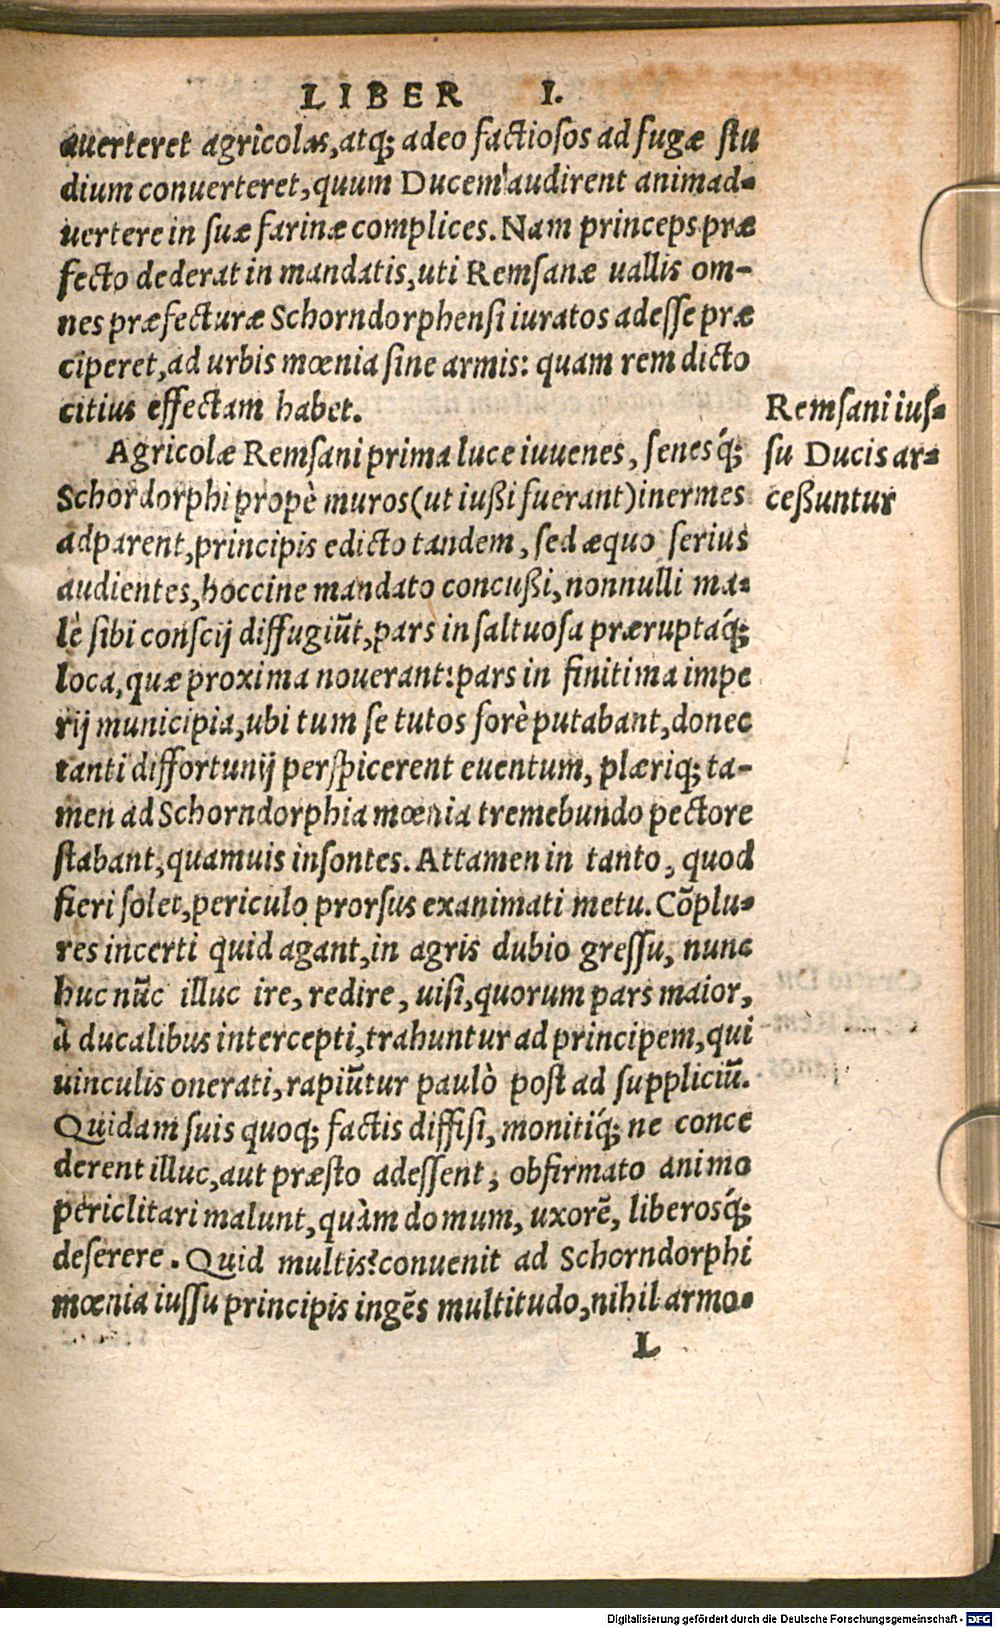 LIBER I.
auerteret agricolas, atq; adeo factiosos ad fugæ stu
dium conuerteret, quum Ducem audirent animad-
uertere in suæ farinæ complices. Nam princeps præ
fecto dederat in mandatis, uti Remsanæ uallis om-
nes præfecturæ Schorndorphensi iuratos adesse præ
ciperet, ad urbis mœnia sine armis: quam rem dicto
citius effectam habet.
Agricolæ Remsani prima luce iuuenes, senesq́;
Schordorphi propè muros (ut iußi fuerant) inermes
adparent, principis edicto tandem, sed æquo serius
audientes, hoccine mandato concußi, nonnulli ma-
lè sibi conscij diffugiūt, pars in saltuosa præruptaq́;
loca, quæ proxima nouerant: pars in finitima impe
rij municipia, ubi tum se tutos forè putabant, donec
tanti diffortunij perspicerent euentum, plæriq; ta-
men ad Schorndorphia mœnia tremebundo pectore
stabant, quamuis insontes. Attamen in tanto, quod
fieri solet, periculo prorsus exanimati metu. Cōplu-
res incerti quid agant, in agris dubio gressu, nunc
huc nūc illuc ire, redire, uisi, quorum pars maior,
à ducalibus intercepti, trahuntur ad principem, qui
uinculis onerati, rapiūtur paulò post ad suppliciū.
Quidam suis quoq; factis diffisi, monitiq́; ne conce
derent illuc, aut præsto adessent, obfirmato animo
periclitari malunt, quàm domum, uxorē, liberosq́;
deserere. Quid multis? conuenit ad Schorndorphi
mœnia iussu principis ingēs multitudo, nihil armo-
L
Remsani ius-
su Ducis ar-
ceßuntur
Digitalisierung gefördert durch die Deutsche Forschungsgemeinschaft - DFG